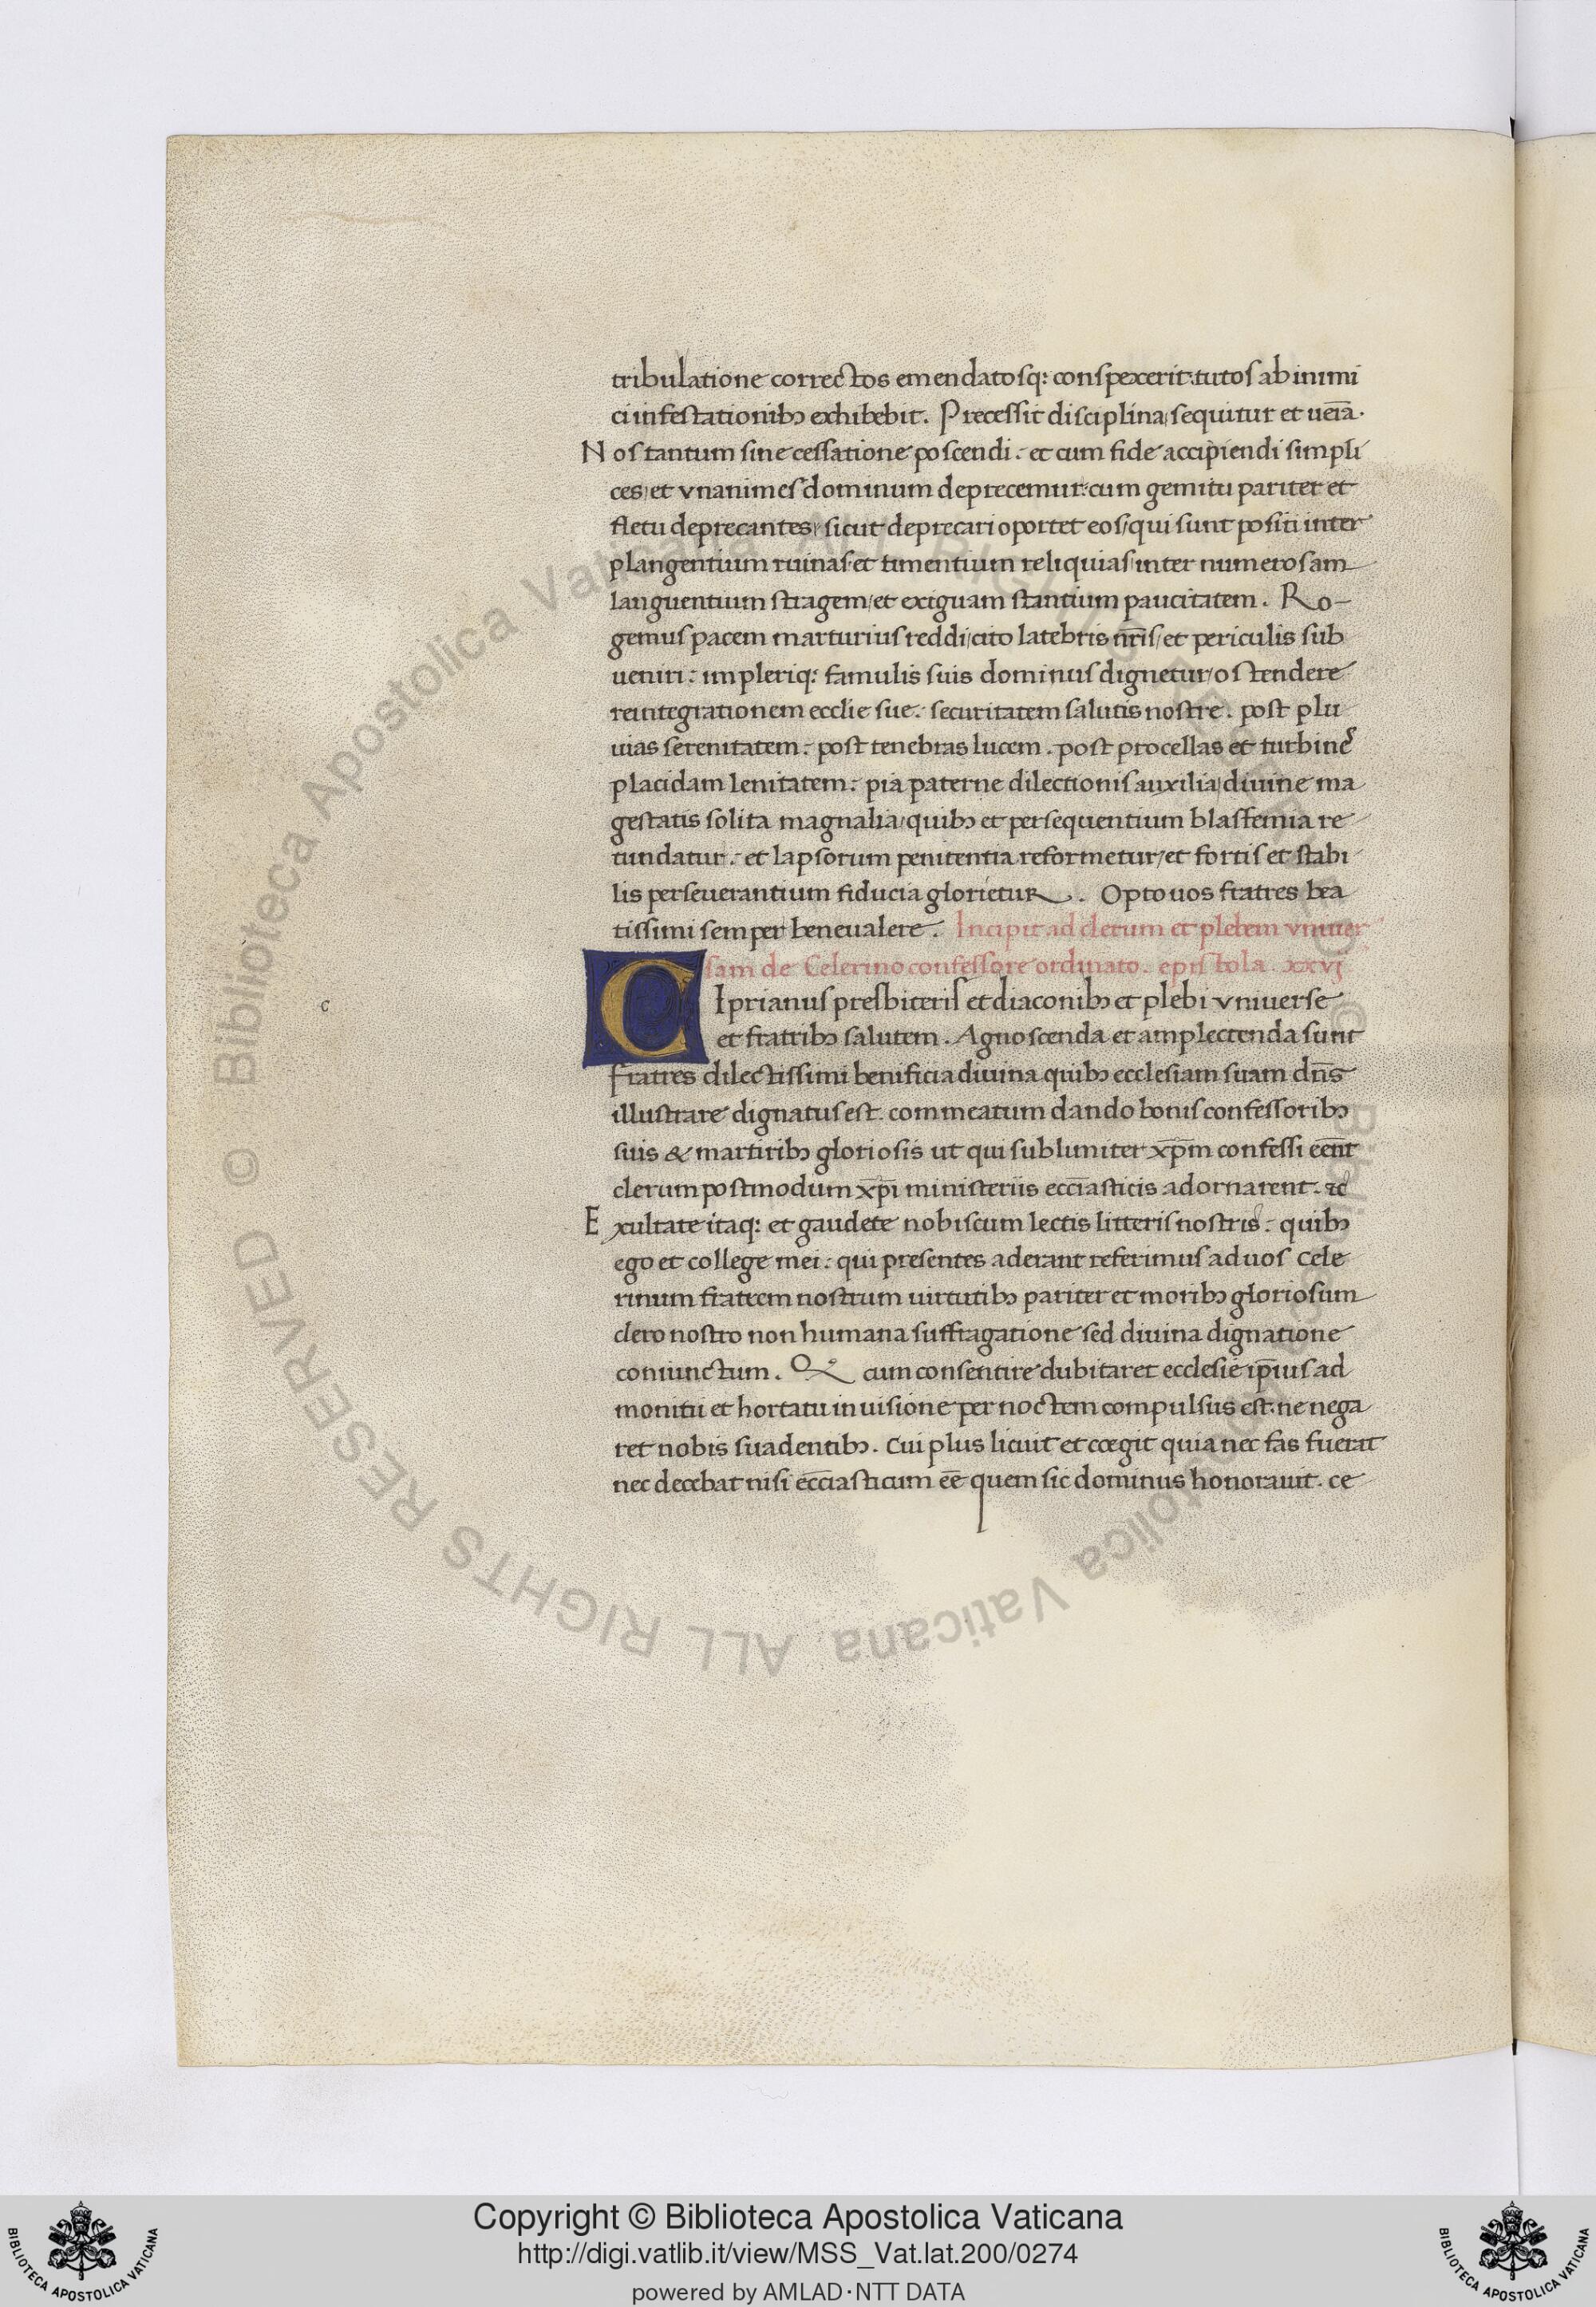 tribulatione correctos emendatosq: conspexerit: tutos ab inimi
ci infestationibꝫ exhibebit. Precessit disciplina, sequitur et ueīa.
Nos tantum sine cessatione poscendi: et cum fide accipiendi simpli
ces, et vnanimes dominum deprecemur: cum gemitu pariter et
fletu deprecantes, sicut deprecari oportet eos, qui sunt positi inter
plangentium ruinas, et timentium reliquias, inter numerosam
languentium stragem, et exiguam stantium paucitatem. Ro-
gemus pacem marturius reddi, cito latebris nr̄is, et periculis sub
ueniri: impleriq: famulis suis dominus dignetur, ostendere
reintegrationem ecclie sue: securitatem salutis nostre. post plu
uias serenitatem: post tenebras lucem. post procellas et turbines
placidam lenitatem: pia paterne dilectionis auxilia, diuine ma
gestatis solita magnalia, quibꝫ et persequentium blasfemia re
tundatur: et lapsorum penitentia reformetur, et fortis et stabi
lis perseuerantium fiducia glorietur. Opto uos fratres bea
tissimi semper bene ualere. Incipit ad clerum et plebem vniuer
sam de Celerino confessore ordinato. epistola. xxvj
Ciprianus presbiteris et diaconibꝫ et plebi vniuerse
et fratribꝫ salutem. Agnoscenda et amplectenda sunt
fratres dilectissimi benificia diuina quibꝫ ecclesiam suam dn̄s
illustrare dignatus est. commeatum dando bonis confessoribꝫ
suis & martiribꝫ gloriosis ut qui sublimiter xp̄m confessi eēnt
clerum postmodum xp̄i ministeriis ecc̄iasticis adornarent.
Exultate itaq: et gaudete nobiscum lectis litteris nostris: quibꝫ
ego et college mei: qui presentes aderant referimus ad uos Cele
rinum fratrem nostrum uirtutibꝫ pariter et moribꝫ gloriosum
clero nostro non humana suffragatione sed diuina dignatione
coniunctum. Qui cum consentire dubitaret ecclesie ip̄ius ad
monitu et hortatu in uisione per noctem compulsus est. ne nega
ret nobis suadentibꝫ. Cui plus licuit et cœgit quia nec fas fuerat
nec decebat nisi ecc̄iasticum eē quem sic dominus honorauit. ce
c
Copyright © Biblioteca Apostolica Vaticana
http://digi.vatlib.it/view/MSS_Vat.lat.200/0274
powered by AMLAD·NTT DATA
© Biblioteca Apostolica Vaticana ALL RIGHTS RESERVED
© Biblioteca Apostolica Vaticana ALL RIGHTS RESERVED
BIBLIOTECA APOSTOLICA VATICANA
BIBLIOTECA APOSTOLICA VATICANA